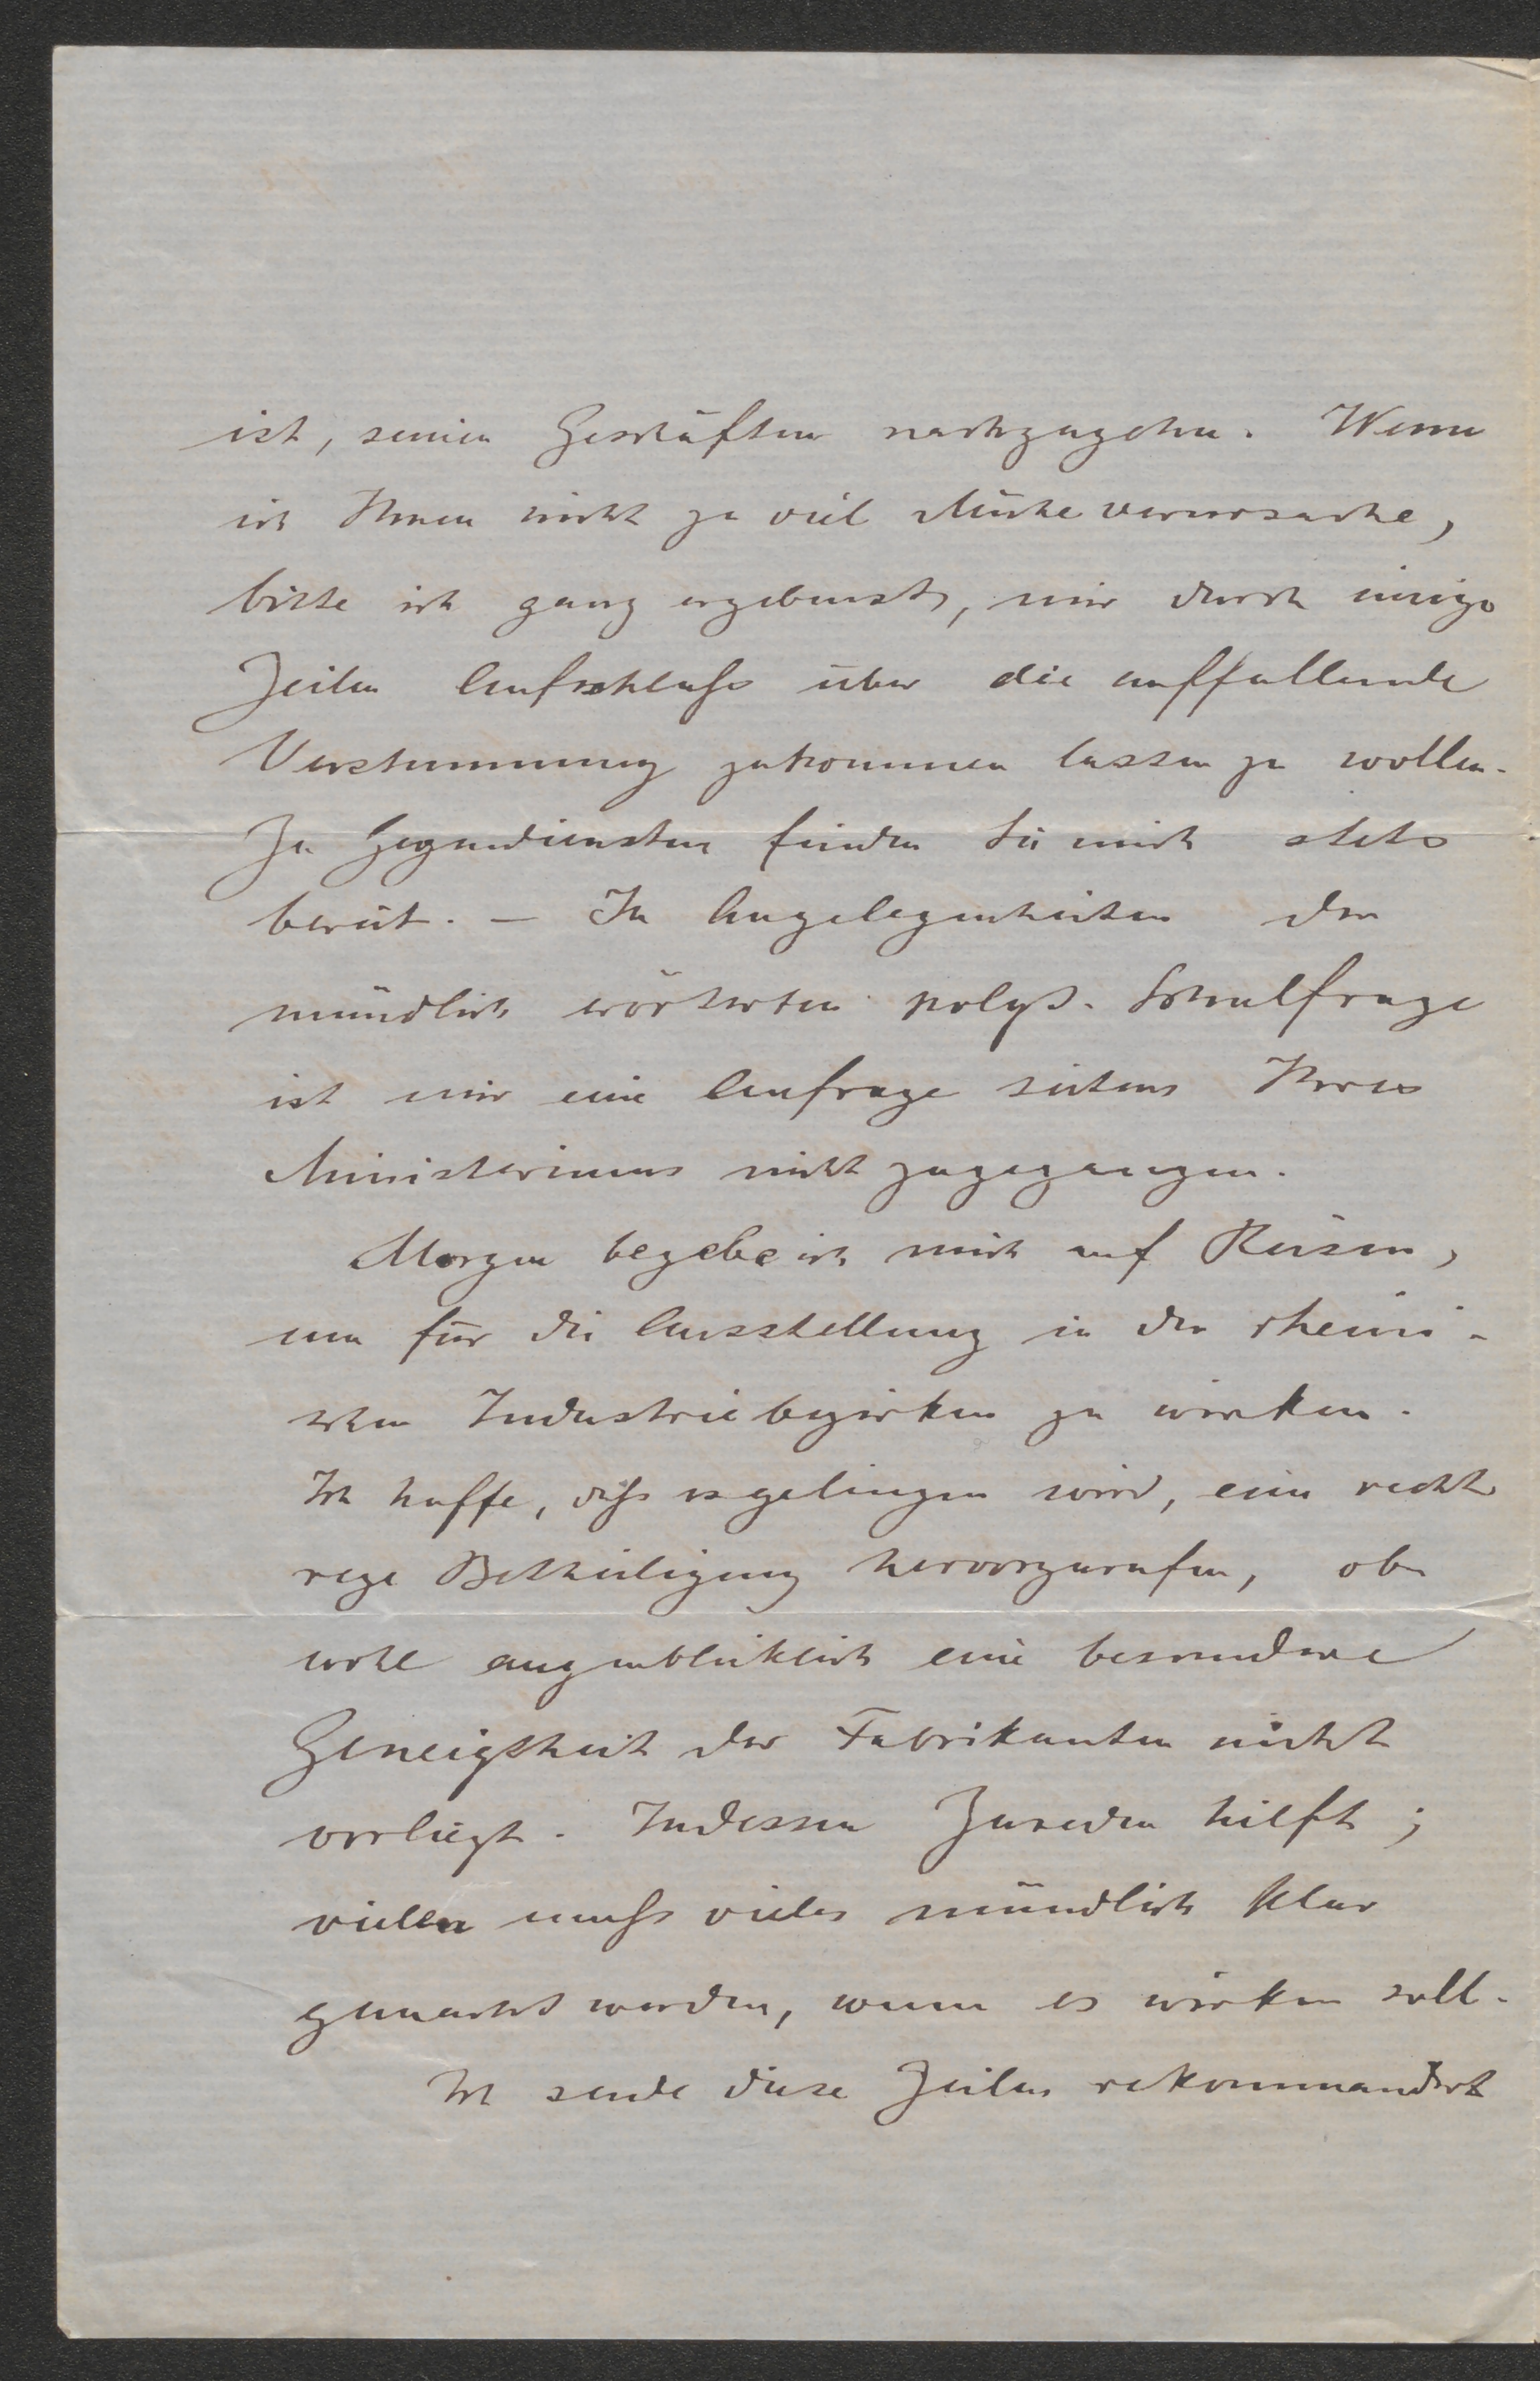 ist, seinen Geschäften nachzugehen. Wenn
ich Ihnen nicht zu viel Mühe verursache,
bitte ich ganz ergebenst, mir durch einige
Zeilen Aufschluss über die auffallende
Verstummung zukommen lassen zu wollen.
Zu Gegendiensten finden Sie mich stets
bereit. – In Angelegenheiten der
mündlich erörterten polyt. Schulfrage
ist mir eine Anfrage seitens Ihres
Ministeriums nicht zugegangen.
Morgen begebe ich mich auf Reisen,
um für die Ausstellung in den rheini-
schen Industriebezirken zu wirken.
Ich hoffe, dass es gelingen wird, eine recht
rege Betheiligung hervorzurufen, ob-
wohl augenblicklich eine besondere
Geneigtheit der Fabrikanten nicht
vorliegt. Indessen Zureden hilft;
vielen muss vieles mündlich klar
gemacht werden, wenn es wirken soll.
Ich sende diese Zeilen rekommandirt